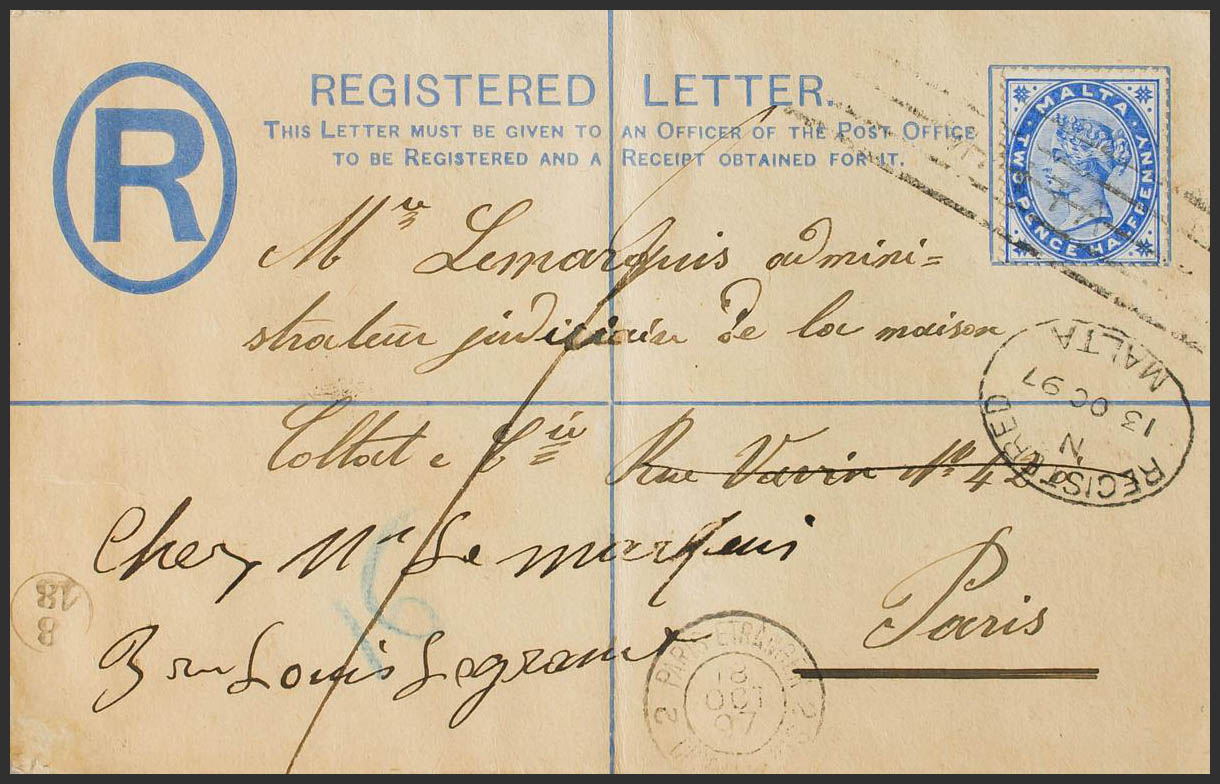 R
REGISTERED LETTER.
THIS LETTER MUST BE GIVEN TO AN OFFICER OF THE POST OFFICE
TO BE REGISTERED AND A RECEIPT OBTAINED FOR IT.
MALTA
TWO PENCE HALFPENNY
Mr Lemarquis admini=
strateur judiciair de la maison
REGISTERED
N
13 OC 97
MALTA
Coltat e Cie Rue Vavin No 42
Chez Mr Lemarquis
Paris
3 rue Louis Legrand
8
18
PARIS ETRANGER
18
OCT
97
2 2